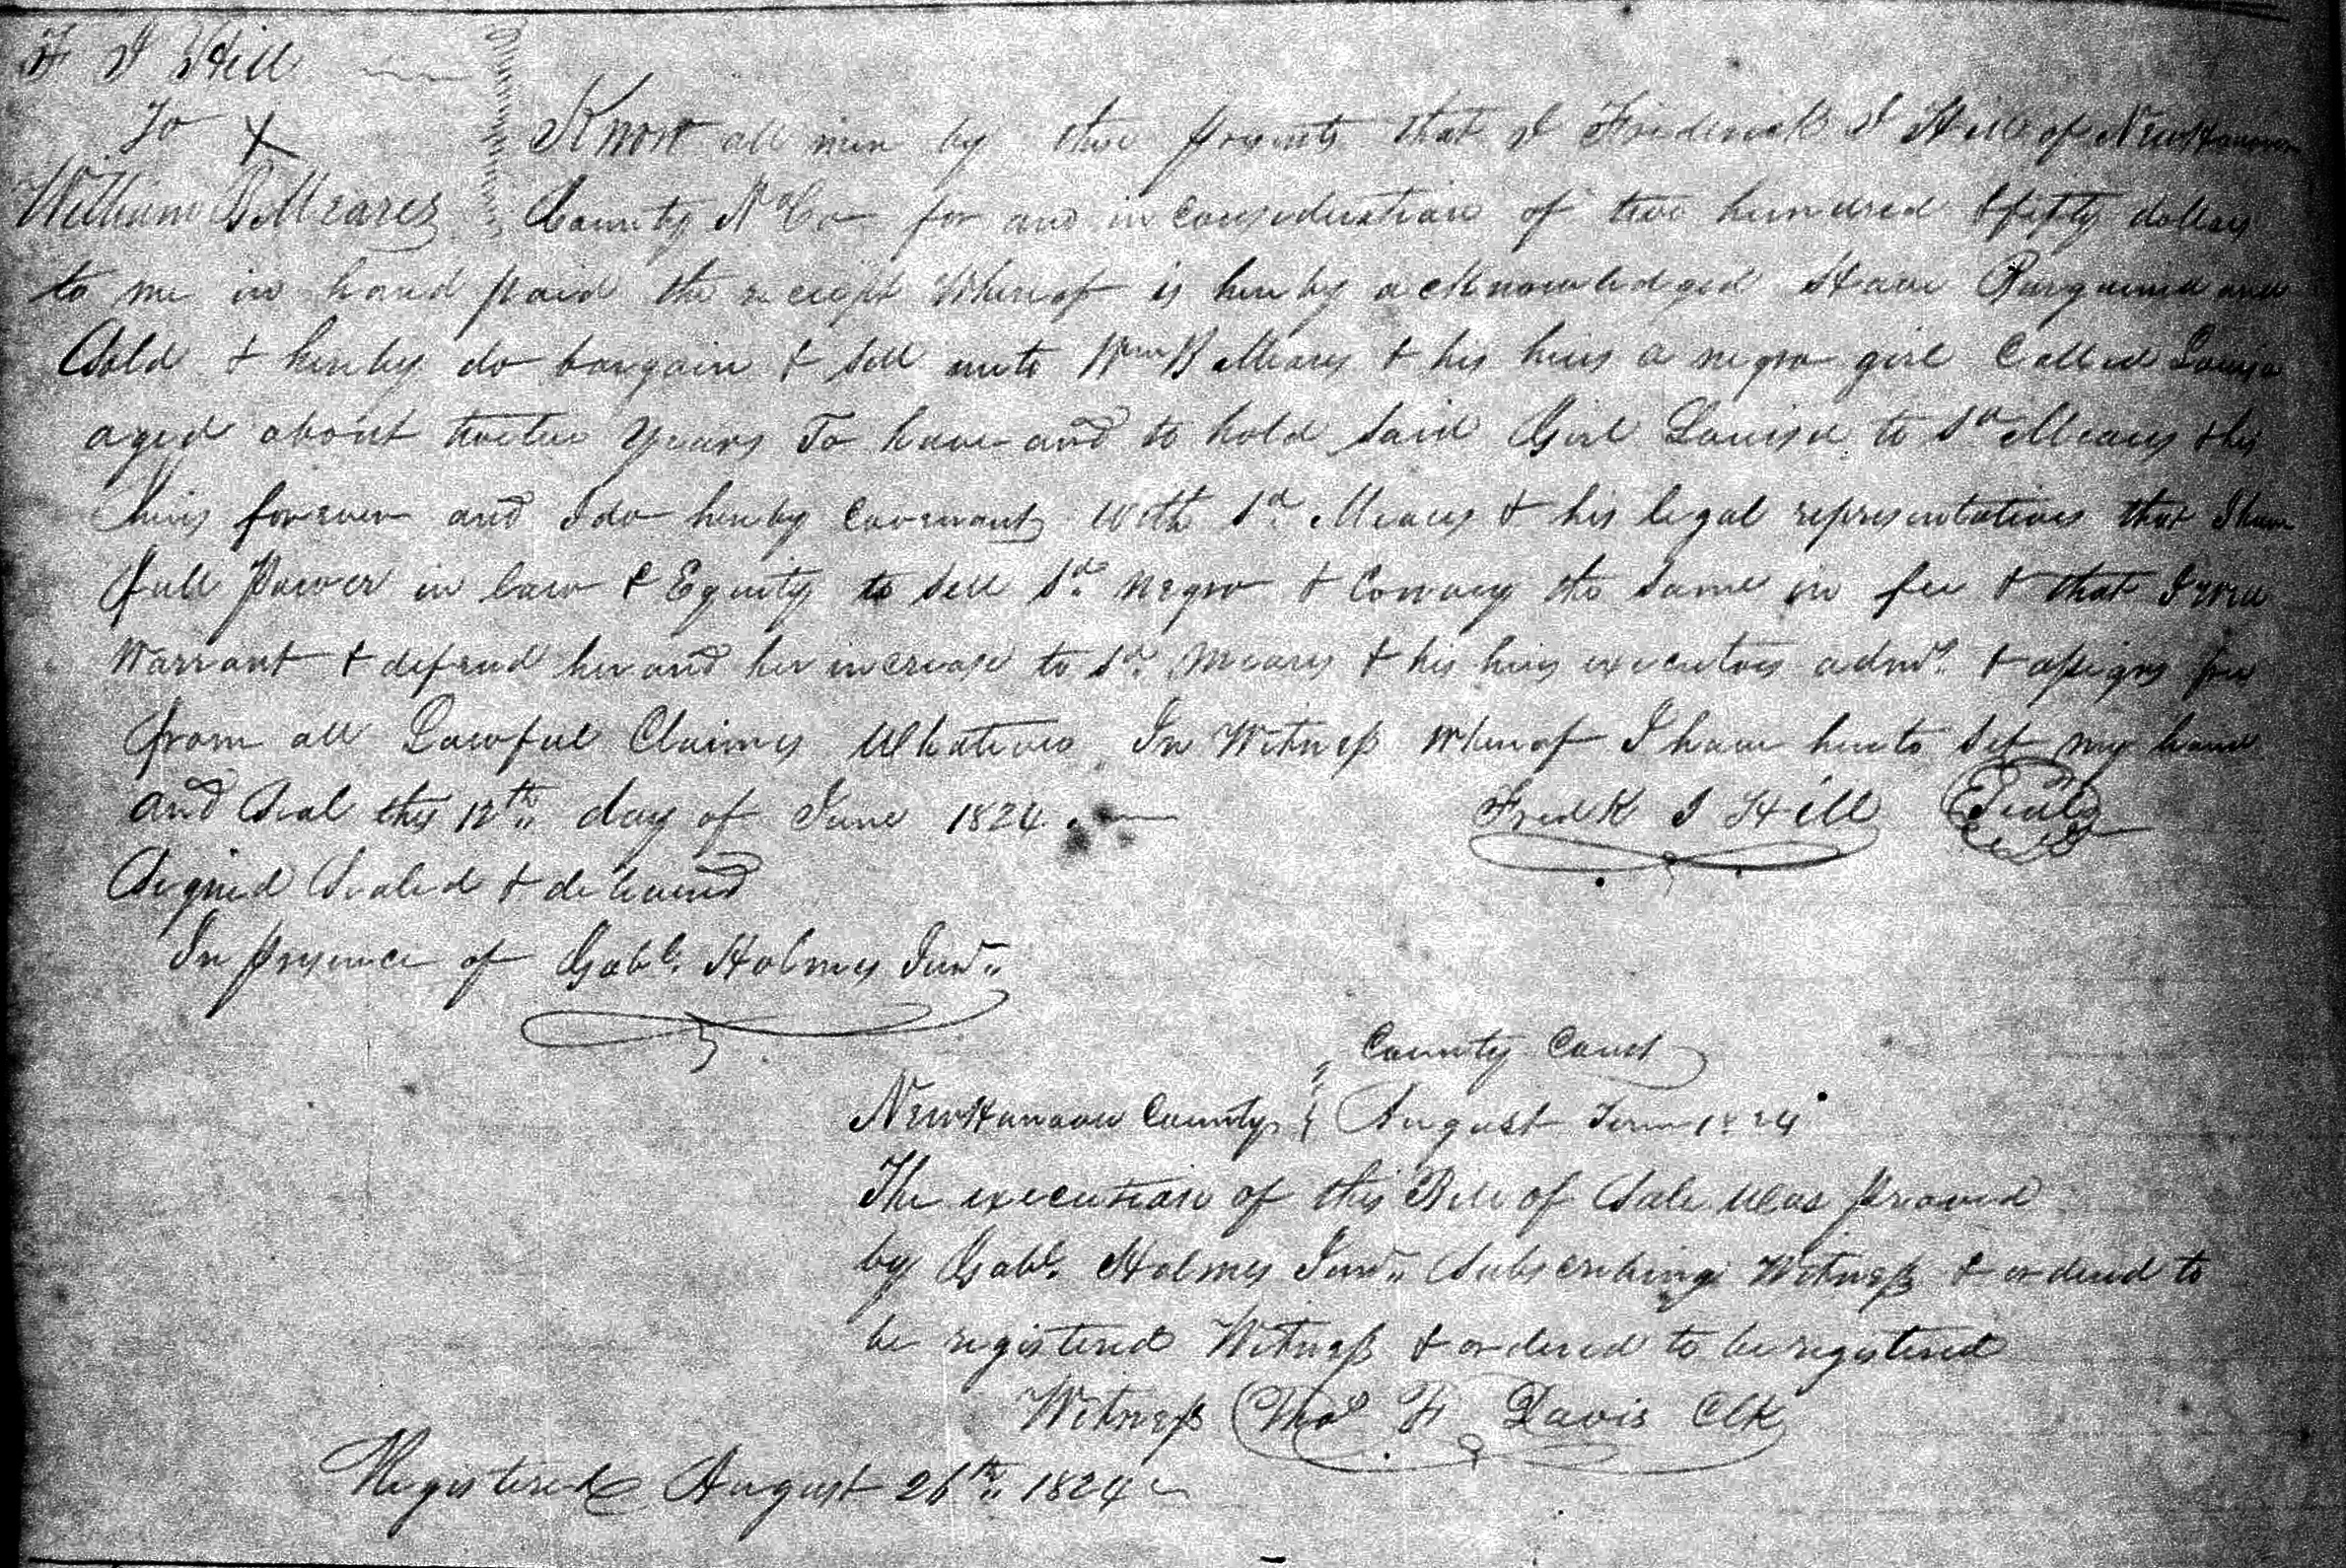 F J Hill
To
William B Meares
Know all men by these presents that I Frederick J Hill of New Hanover
County No Ca for and in consideration of two hundred & fifty dollars
to me in hand paid the receipt whereof is hereby acknowledged Have Bargained and
Sold & hereby do bargain & sell unto Wm B Meares & his heirs a negro girl Called Louisa
aged about twelve years To have and to hold said Girl Louisa to sd Meares & his
heirs forever and I do hereby Covenant with sd Meares & his legal representatives that I have
full Power in law & Equity to sell sd negro & Convey the same in fee & that I will
Warrant & defend her and her increase to sd Meares & his heirs executors admrs & assigns free
from all Lawful Claims Whatever In Witness whereof I have hereto set my hand
and Seal this 12th day of June 1824
Fredk J Hill Seal
Signed Sealed & delivered
In presence of Gabl. Holmes Junr
County Court
New Hanover County August Term 1824
The execution of this Bill of Sale Was proved
by Gabl. Holmes Junr Subscribing Witness & ordered to
be registered Witness & ordered to be registered
Witness Thos F Davis Clk
Registered August 26th 1824